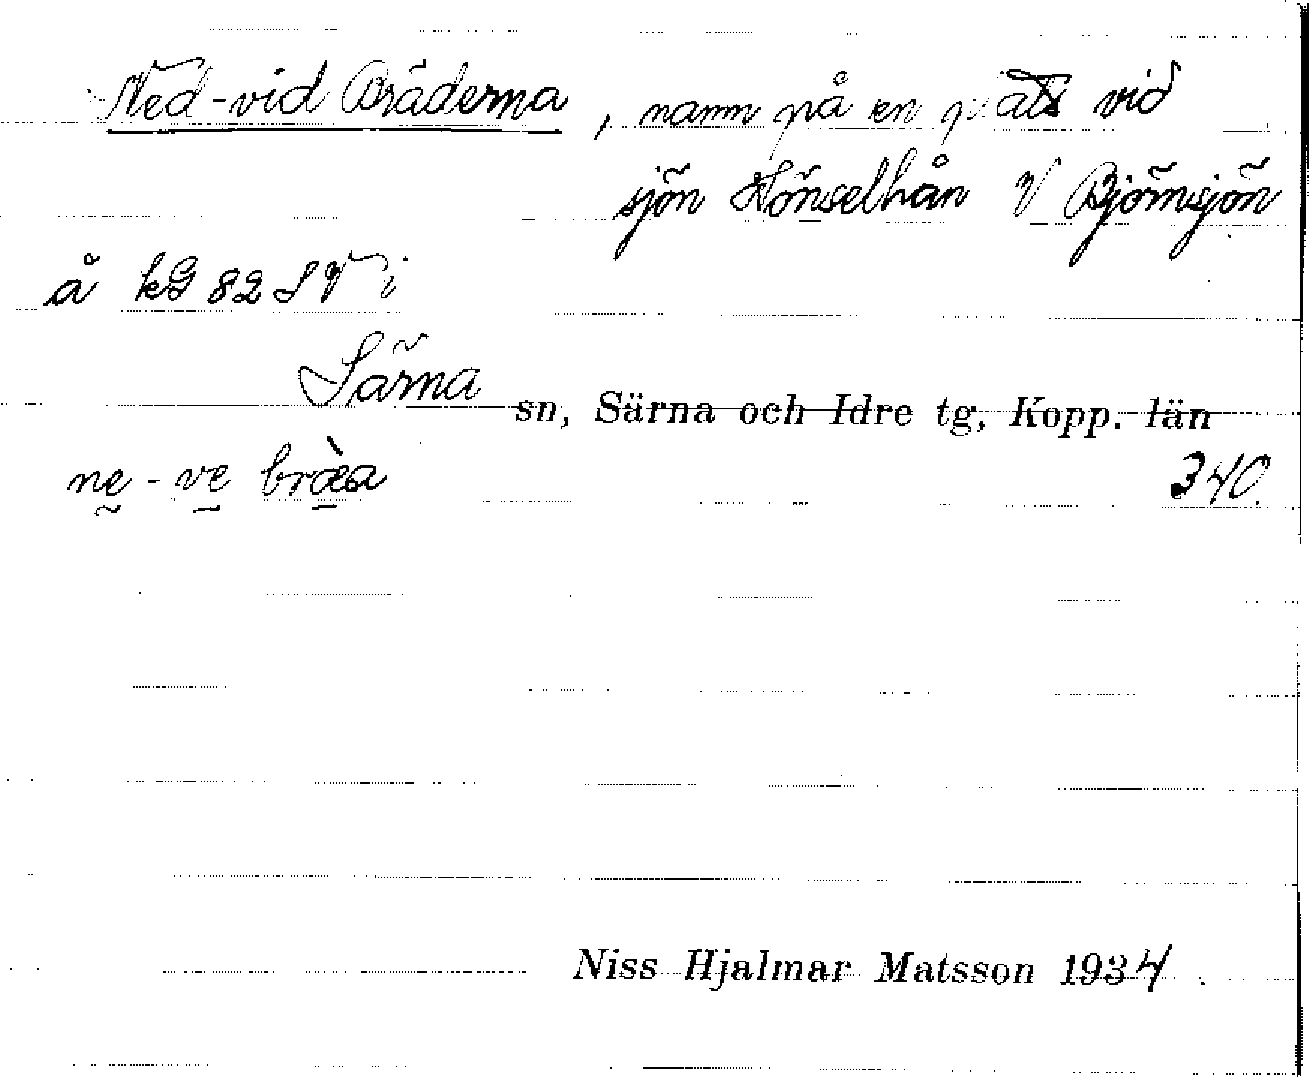 Ned-vid Bräderna, namn på en plats vid
sjön Hönselhån V Björnsjön
å kG 82 SV i
Särna sn, Särna och Idre tg, Kopp. län
ne - ve bræ̀a 340.
Niss Hjalmar Matsson 1934.